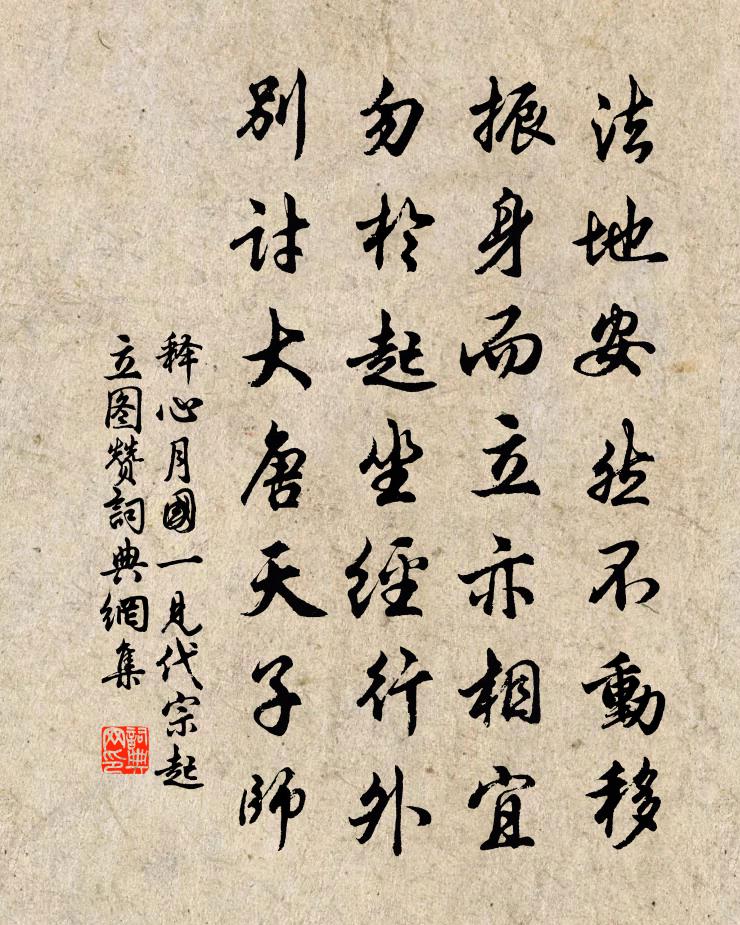 法地安然不動移
振身而立亦相宜
勿於起坐經行外
別討大唐天子師
释心月國一見代宗起
立图赞詞典網集
詞典
网印